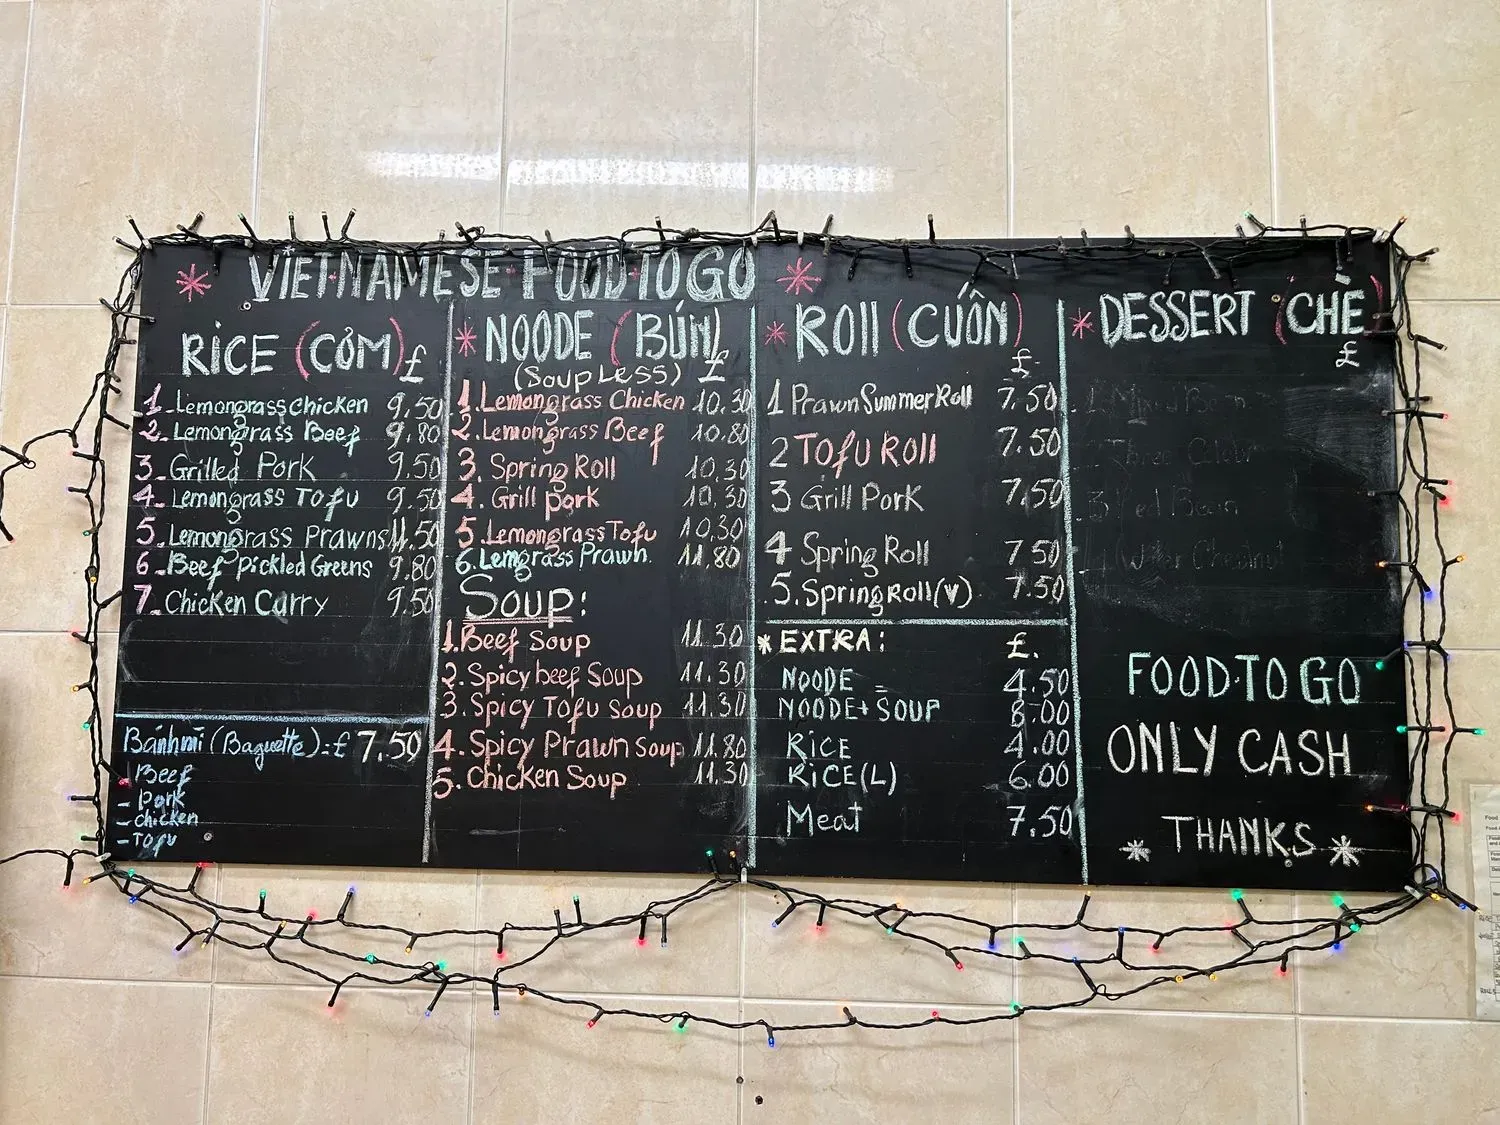 * VIETNAMESE FOOD TO GO *
RICE (CƠM) £
1. Lemongrass chicken 9.50
2. Lemongrass Beef 9.80
3. Grilled Pork 9.50
4. Lemongrass Tofu 9.50
5. Lemongrass Prawns 11.50
6. Beef pickled Greens 9.80
7. Chicken Curry 9.50
Bánhmì (Baguette):£ 7.50
- Beef
- Pork
- chicken
- Tofu
* NOODE (BÚN)
(SoupLess) £
1. Lemongrass Chicken 10.30
2. Lemongrass Beef 10.80
3. Spring Roll 10.30
4. Grill pork 10.30
5. Lemongrass Tofu 10.30
6. Lemgrass Prawn. 11.80
Soup:
1. Beef Soup 11.30
2. Spicy beef Soup 11.30
3. Spicy Tofu soup 11.30
4. Spicy Prawn Soup 11.80
5. Chicken Soup 11.30
* ROll (CUÔN)
£
1 Prawn Summer Roll 7.50
2 TOfU ROLL 7.50
3 Grill Pork 7.50
4 Spring Roll 7.50
5. Spring Roll (V) 7.50
* EXTRA: £.
NOODE 4.50
NOODE+SOUP 8.00
RiCE 4.00
RiCE(L) 6.00
Meat 7.50
* DESSERT (CHÈ)
£
1. Mixed Bean
2. Three Colour
3. Red Bean
4. Water Chestnut
FOOD TO GO
ONLY CASH
* THANKS *